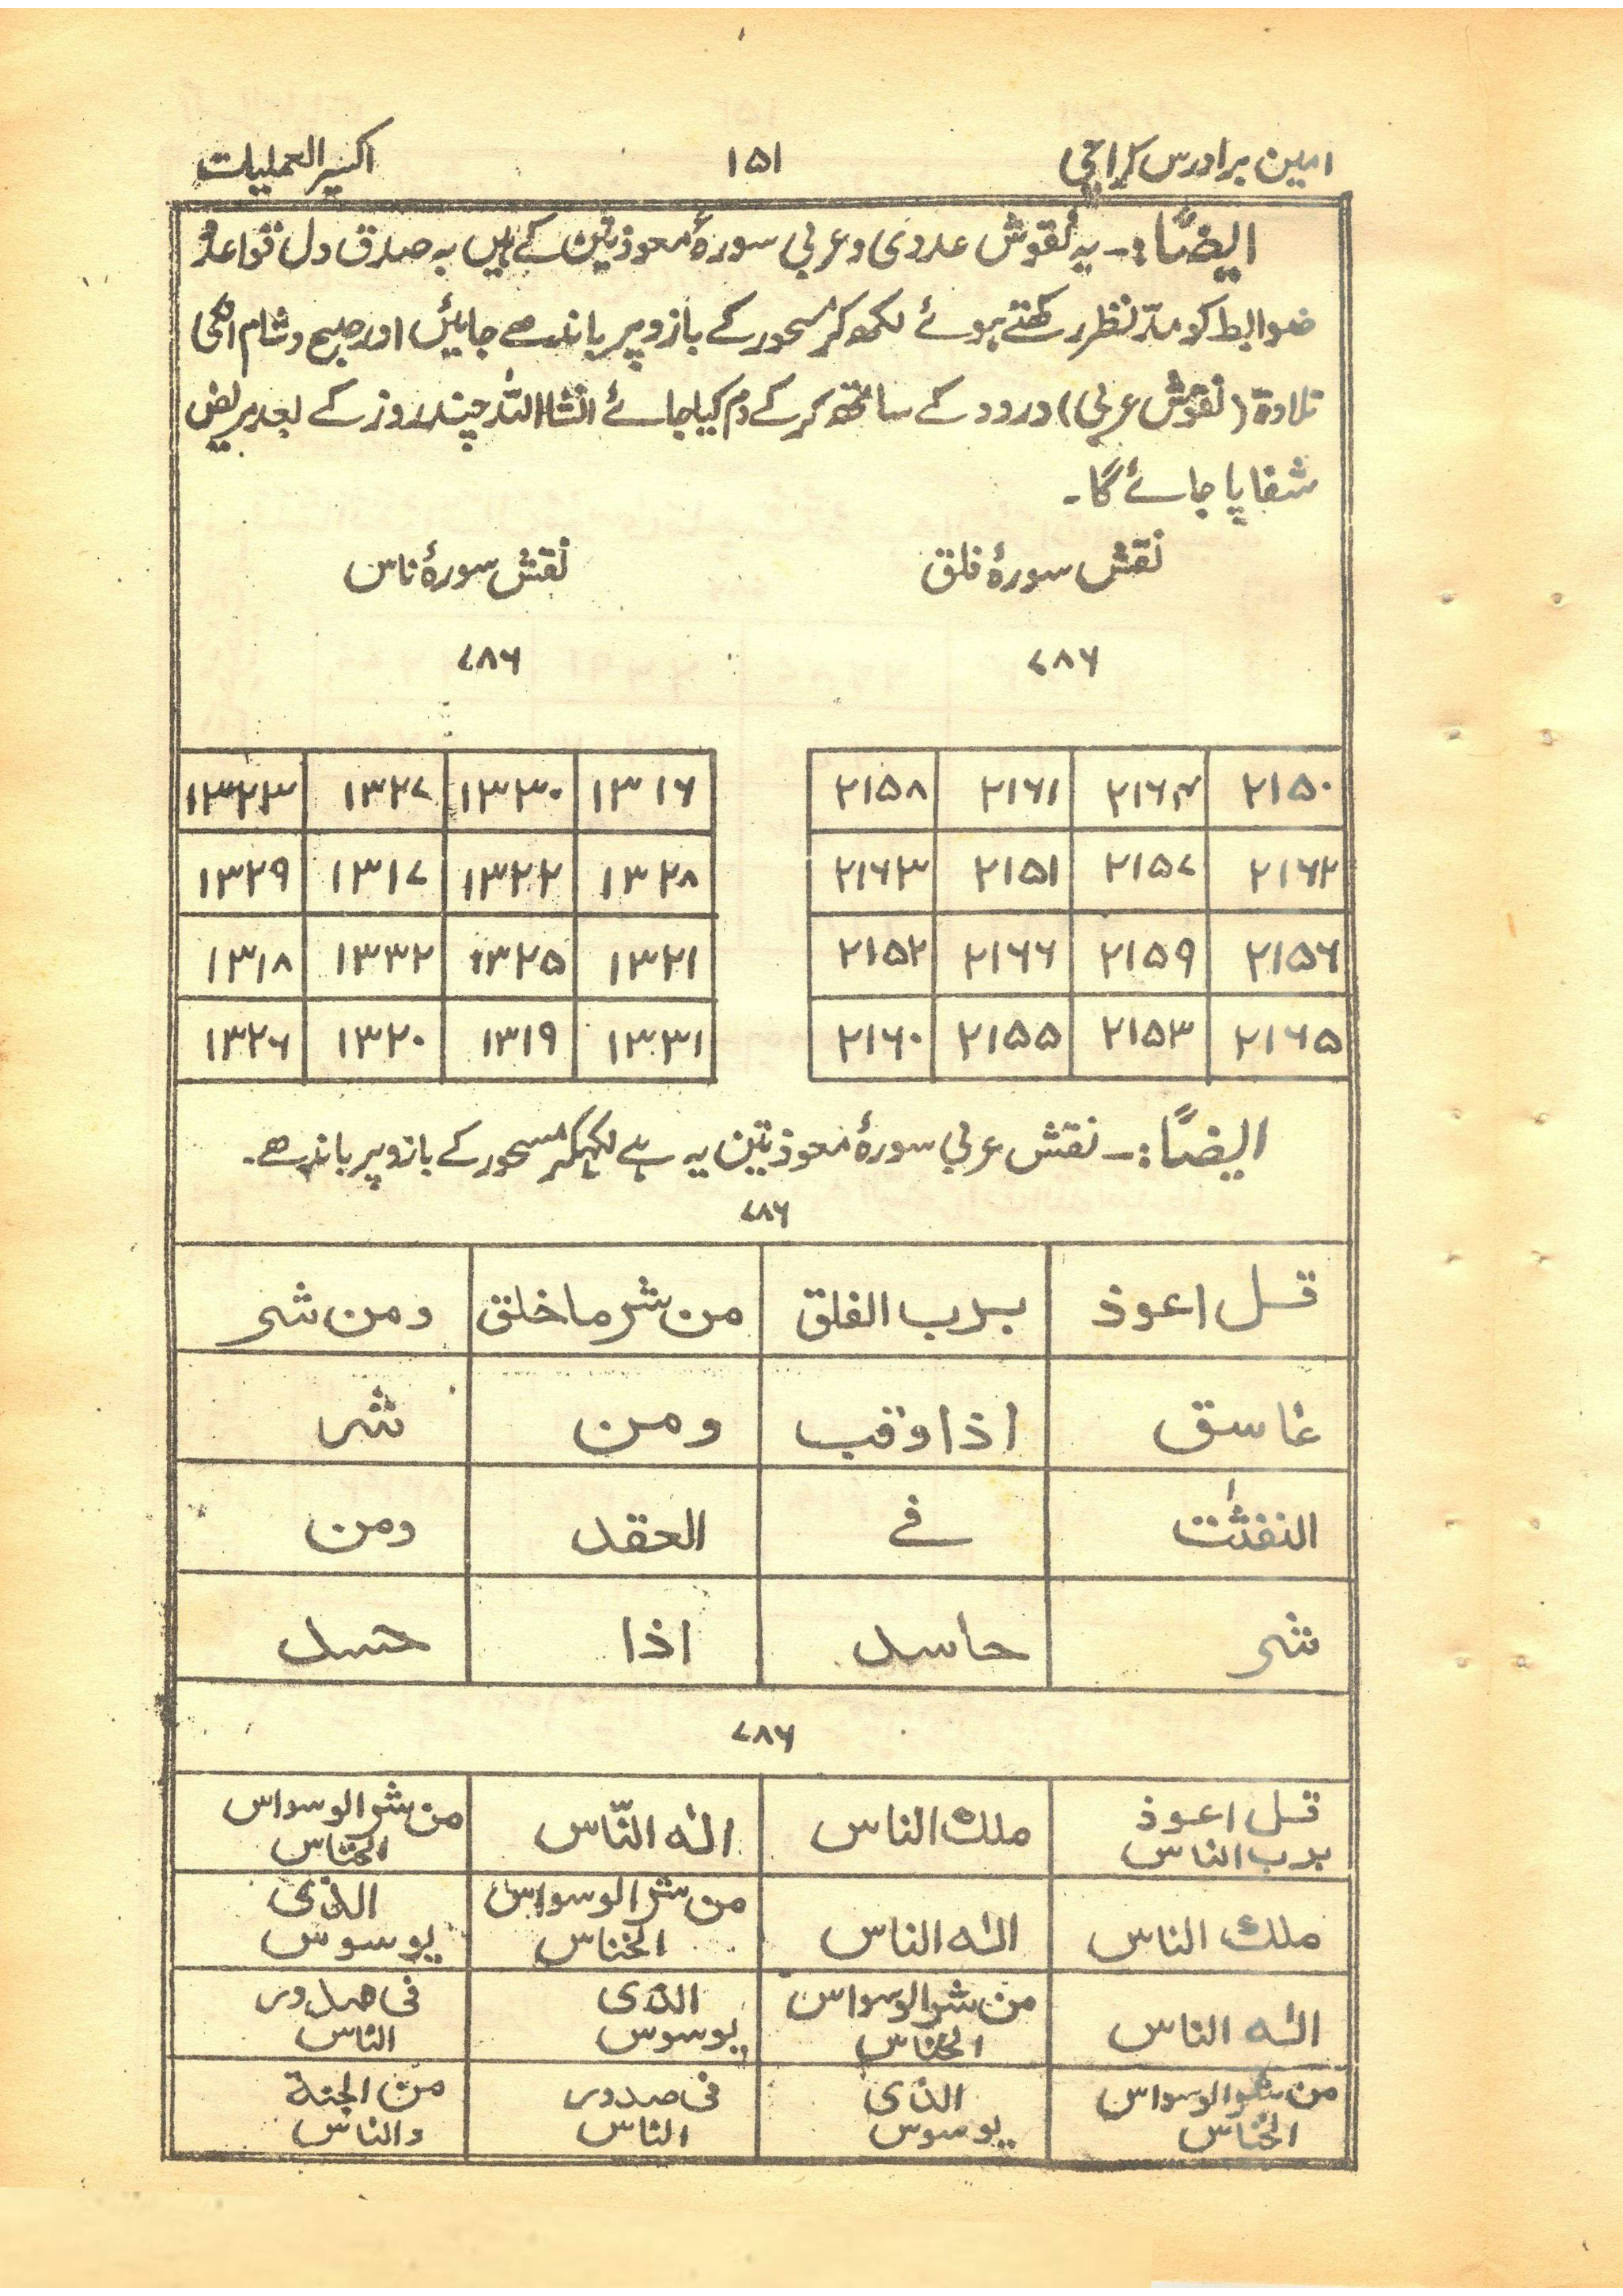 امین برادرس کراچی
۱۵۱
اکسیر العملیات
ایضًا:۔ یہ نقوش عددی و عربی سورۂ معوذتین کے ہیں بہ صدق دل قواعد و
ضوابط کو مدّنظر رکھتے ہوئے لکھ کر مسحور کے بازو پر باندھے جائیں اور صبح و شام انکی
تلاوۃ (نقوش عربی) درود کے ساتھ کر کے دم کیا جائے انشااللہ چند روز کے بعد مریض
شفا پا جائے گا۔
نقش سورۂ فلق
نقش سورۂ ناس
۷۸۶
۷۸۶
۲۱۵۰ ۲۱۶۴ ۲۱۶۱ ۲۱۵۸
۲۱۶۲ ۲۱۵۷ ۲۱۵۱ ۲۱۶۳
۲۱۵۶ ۲۱۵۹ ۲۱۶۶ ۲۱۵۲
۲۱۶۵ ۲۱۵۳ ۲۱۵۵ ۲۱۶۰
۱۳۱۶ ۱۳۳۰ ۱۳۲۷ ۱۳۲۳
۱۳۲۸ ۱۳۲۲ ۱۳۱۷ ۱۳۲۹
۱۳۲۱ ۱۳۲۵ ۱۳۳۲ ۱۳۱۸
۱۳۳۱ ۱۳۱۹ ۱۳۲۰ ۱۳۲۶
ایضًا:۔ نقش عربی سورۂ معوذتین یہ ہے لکھکر مسحور کے بازو پر باندھے۔
۷۸۶
قل اعوذ برب الفلق من شر ما خلق ومن شر
غاسق اذا وقب ومن شر
النفثٰت فے العقد ومن
شر حاسد اذا حسد
۷۸۶
قل اعوذ برب الناس ملك الناس الٰه النّاس من شر الوسواس الخناس
ملك الناس الٰه الناس من شر الوسواس الخناس الذی یوسوس
الٰه الناس من شر الوسواس الخناس الذی یوسوس فی صدور الناس
من شر الوسواس الخناس الذی یوسوس فی صدور الناس من الجنة والناس